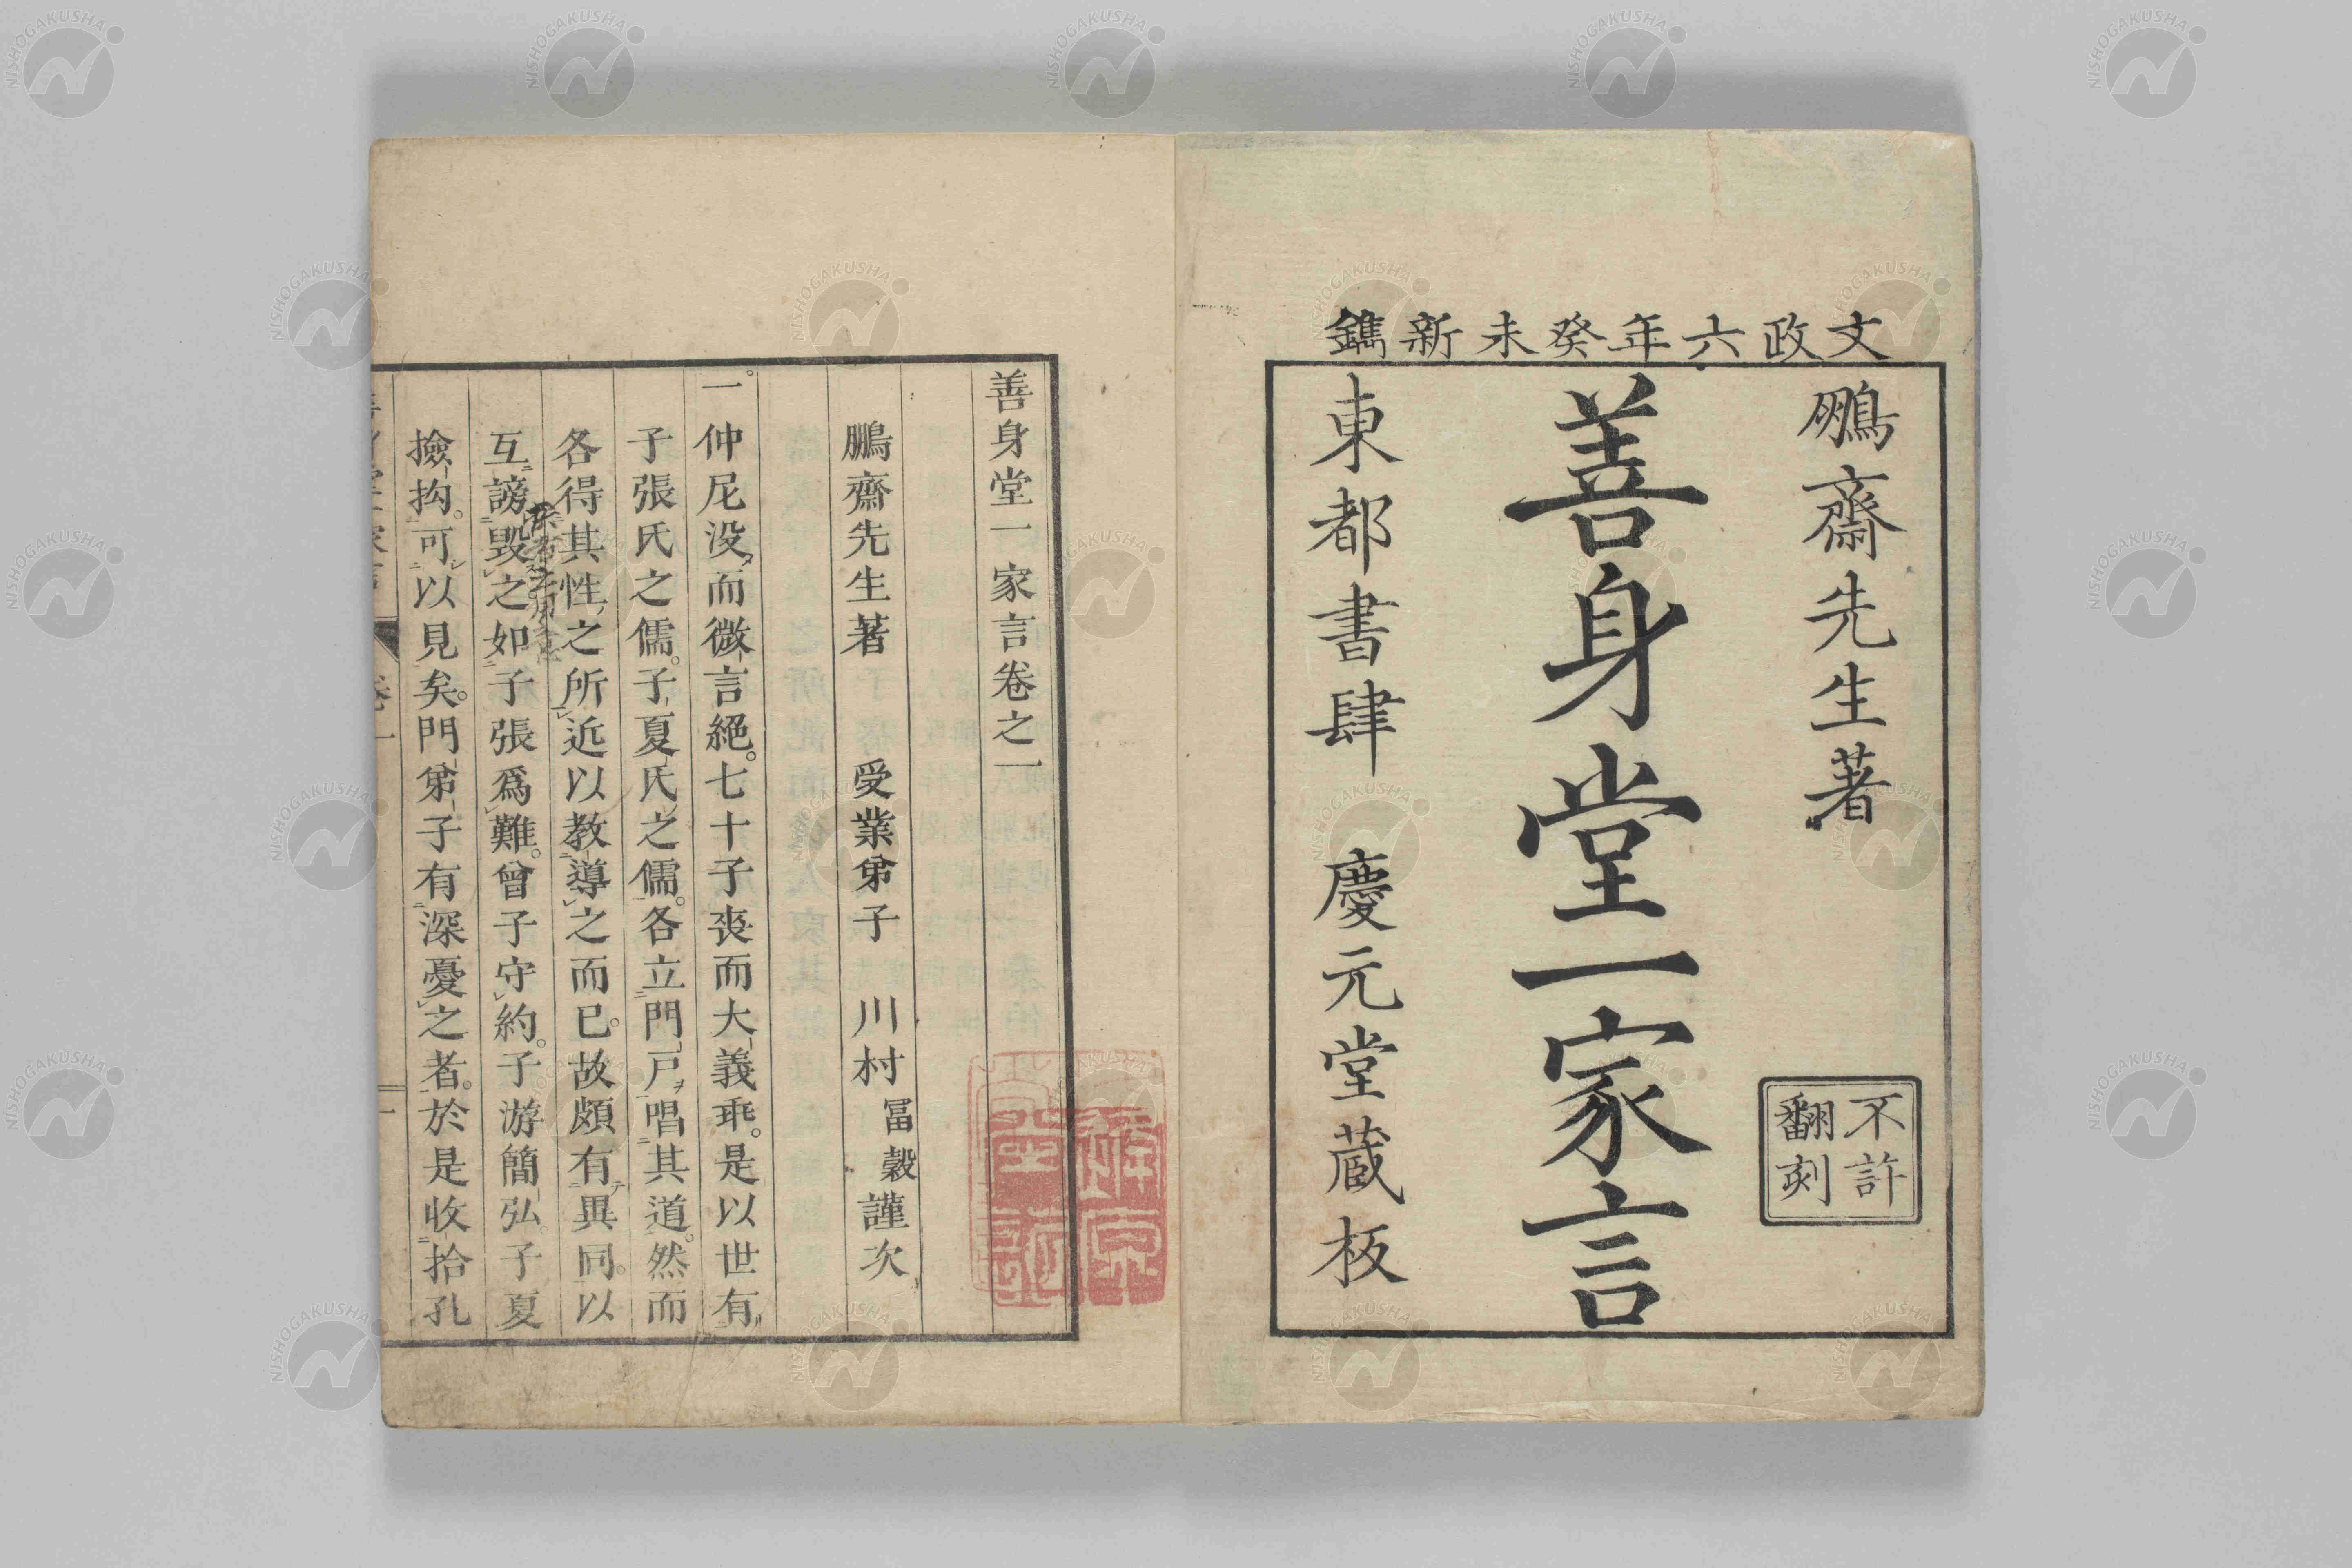 文政六年癸未新鐫
鵬齋先生著
不許
翻刻
善身堂一家言
東都書肆 慶元堂蔵板
善身堂一家言卷之一
鵬齋先生著 受業弟子 川村 冨穀 謹次
一仲尼没而微言絕。七十子喪而大義乖。是以世有
子張氏之儒。子夏氏之儒。各立門戸唱其道。然而
各得其性之所近以教導之而已。故頗有異同。以
互謗毀之。如子張爲難。曾子守約。子游簡弘。子夏
撿抅。可以見矣。門弟子有深憂之者。於是收拾孔
NISHOGAKUSHA